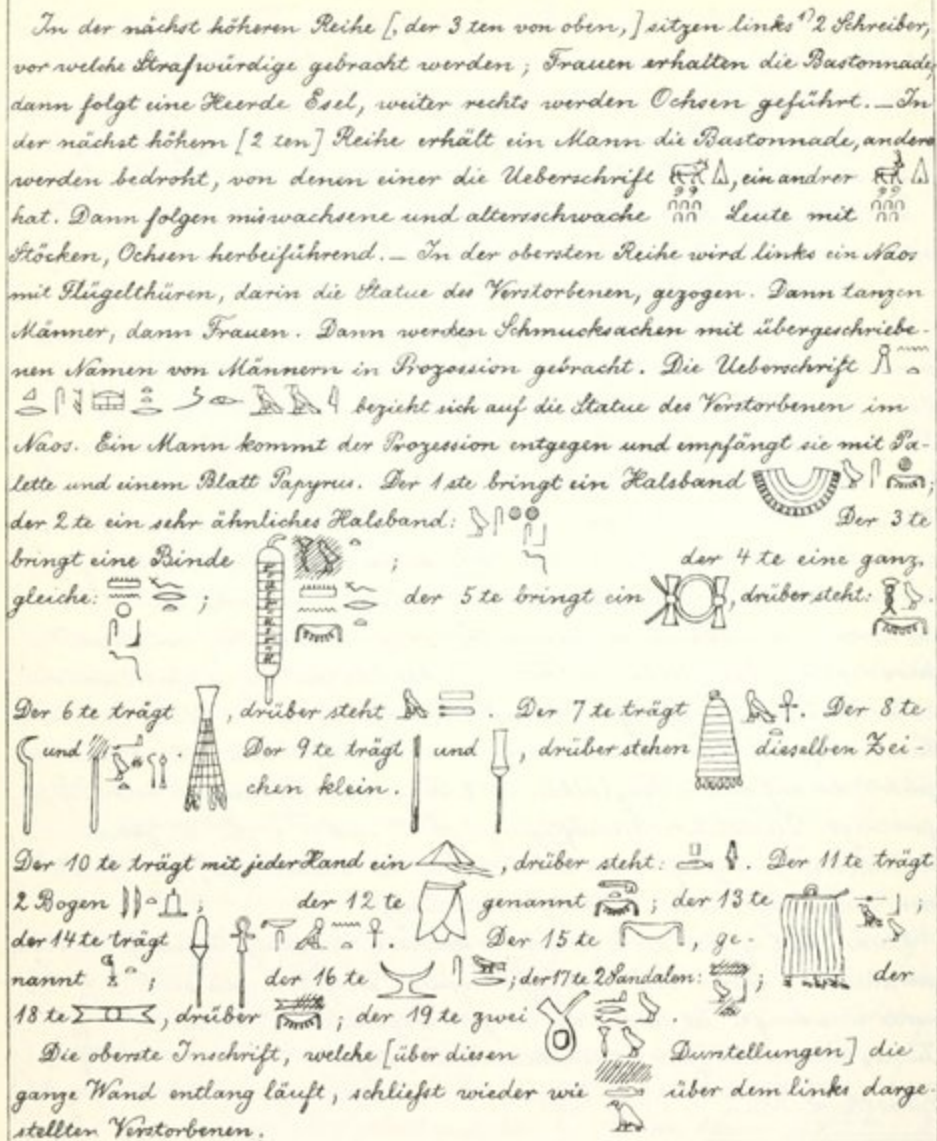 In der nächst höheren Reihe [, der 3 ten von oben,] sitzen links 1) 2 Schreiber,
vor welche Strafwürdige gebracht werden; Frauen erhalten die Bastonnade,
dann folgt eine Heerde Esel, weiter rechts werden Ochsen geführt. — In
der nächst höhern [2 ten] Reihe erhält ein Mann die Bastonnade, andere
werden bedroht, von denen einer die Ueberschrift , ein andrer
hat. Dann folgen miswachsene und altersschwache Leute mit
Stöcken, Ochsen herbeiführend. — In der obersten Reihe wird links ein Naos
mit Flügelthüren, darin die Statue des Verstorbenen, gezogen. Dann tanzen
Männer, dann Frauen. Dann werden Schmucksachen mit übergeschriebe-
nen Namen von Männern in Prozession gebracht. Die Ueberschrift
bezieht sich auf die Statue des Verstorbenen im
Naos. Ein Mann kommt der Prozession entgegen und empfängt sie mit Pa-
lette und einem Blatt Papyrus. Der 1 ste bringt ein Halsband ;
der 2 te ein sehr ähnliches Halsband: Der 3 te
bringt eine Binde ; der 4 te eine ganz
gleiche: ; der 5 te bringt ein , drüber steht: .
Der 6 te trägt , drüber steht . Der 7 te trägt . Der 8 te
und . Der 9 te trägt und , drüber stehen dieselben Zei-
chen klein.
Der 10 te trägt mit jeder Hand ein , drüber steht: . Der 11 te trägt
2 Bogen ; der 12 te genannt ; der 13 te ;
der 14 te trägt . Der 15 te , ge-
nannt ; der 16 te ; der 17 te 2 Sandalen: ; der
18 te , drüber ; der 19 te zwei .
Die oberste Inschrift, welche [über diesen Darstellungen] die
ganze Wand entlang läuft, schliefst wieder wie über dem links darge-
stellten Verstorbenen.